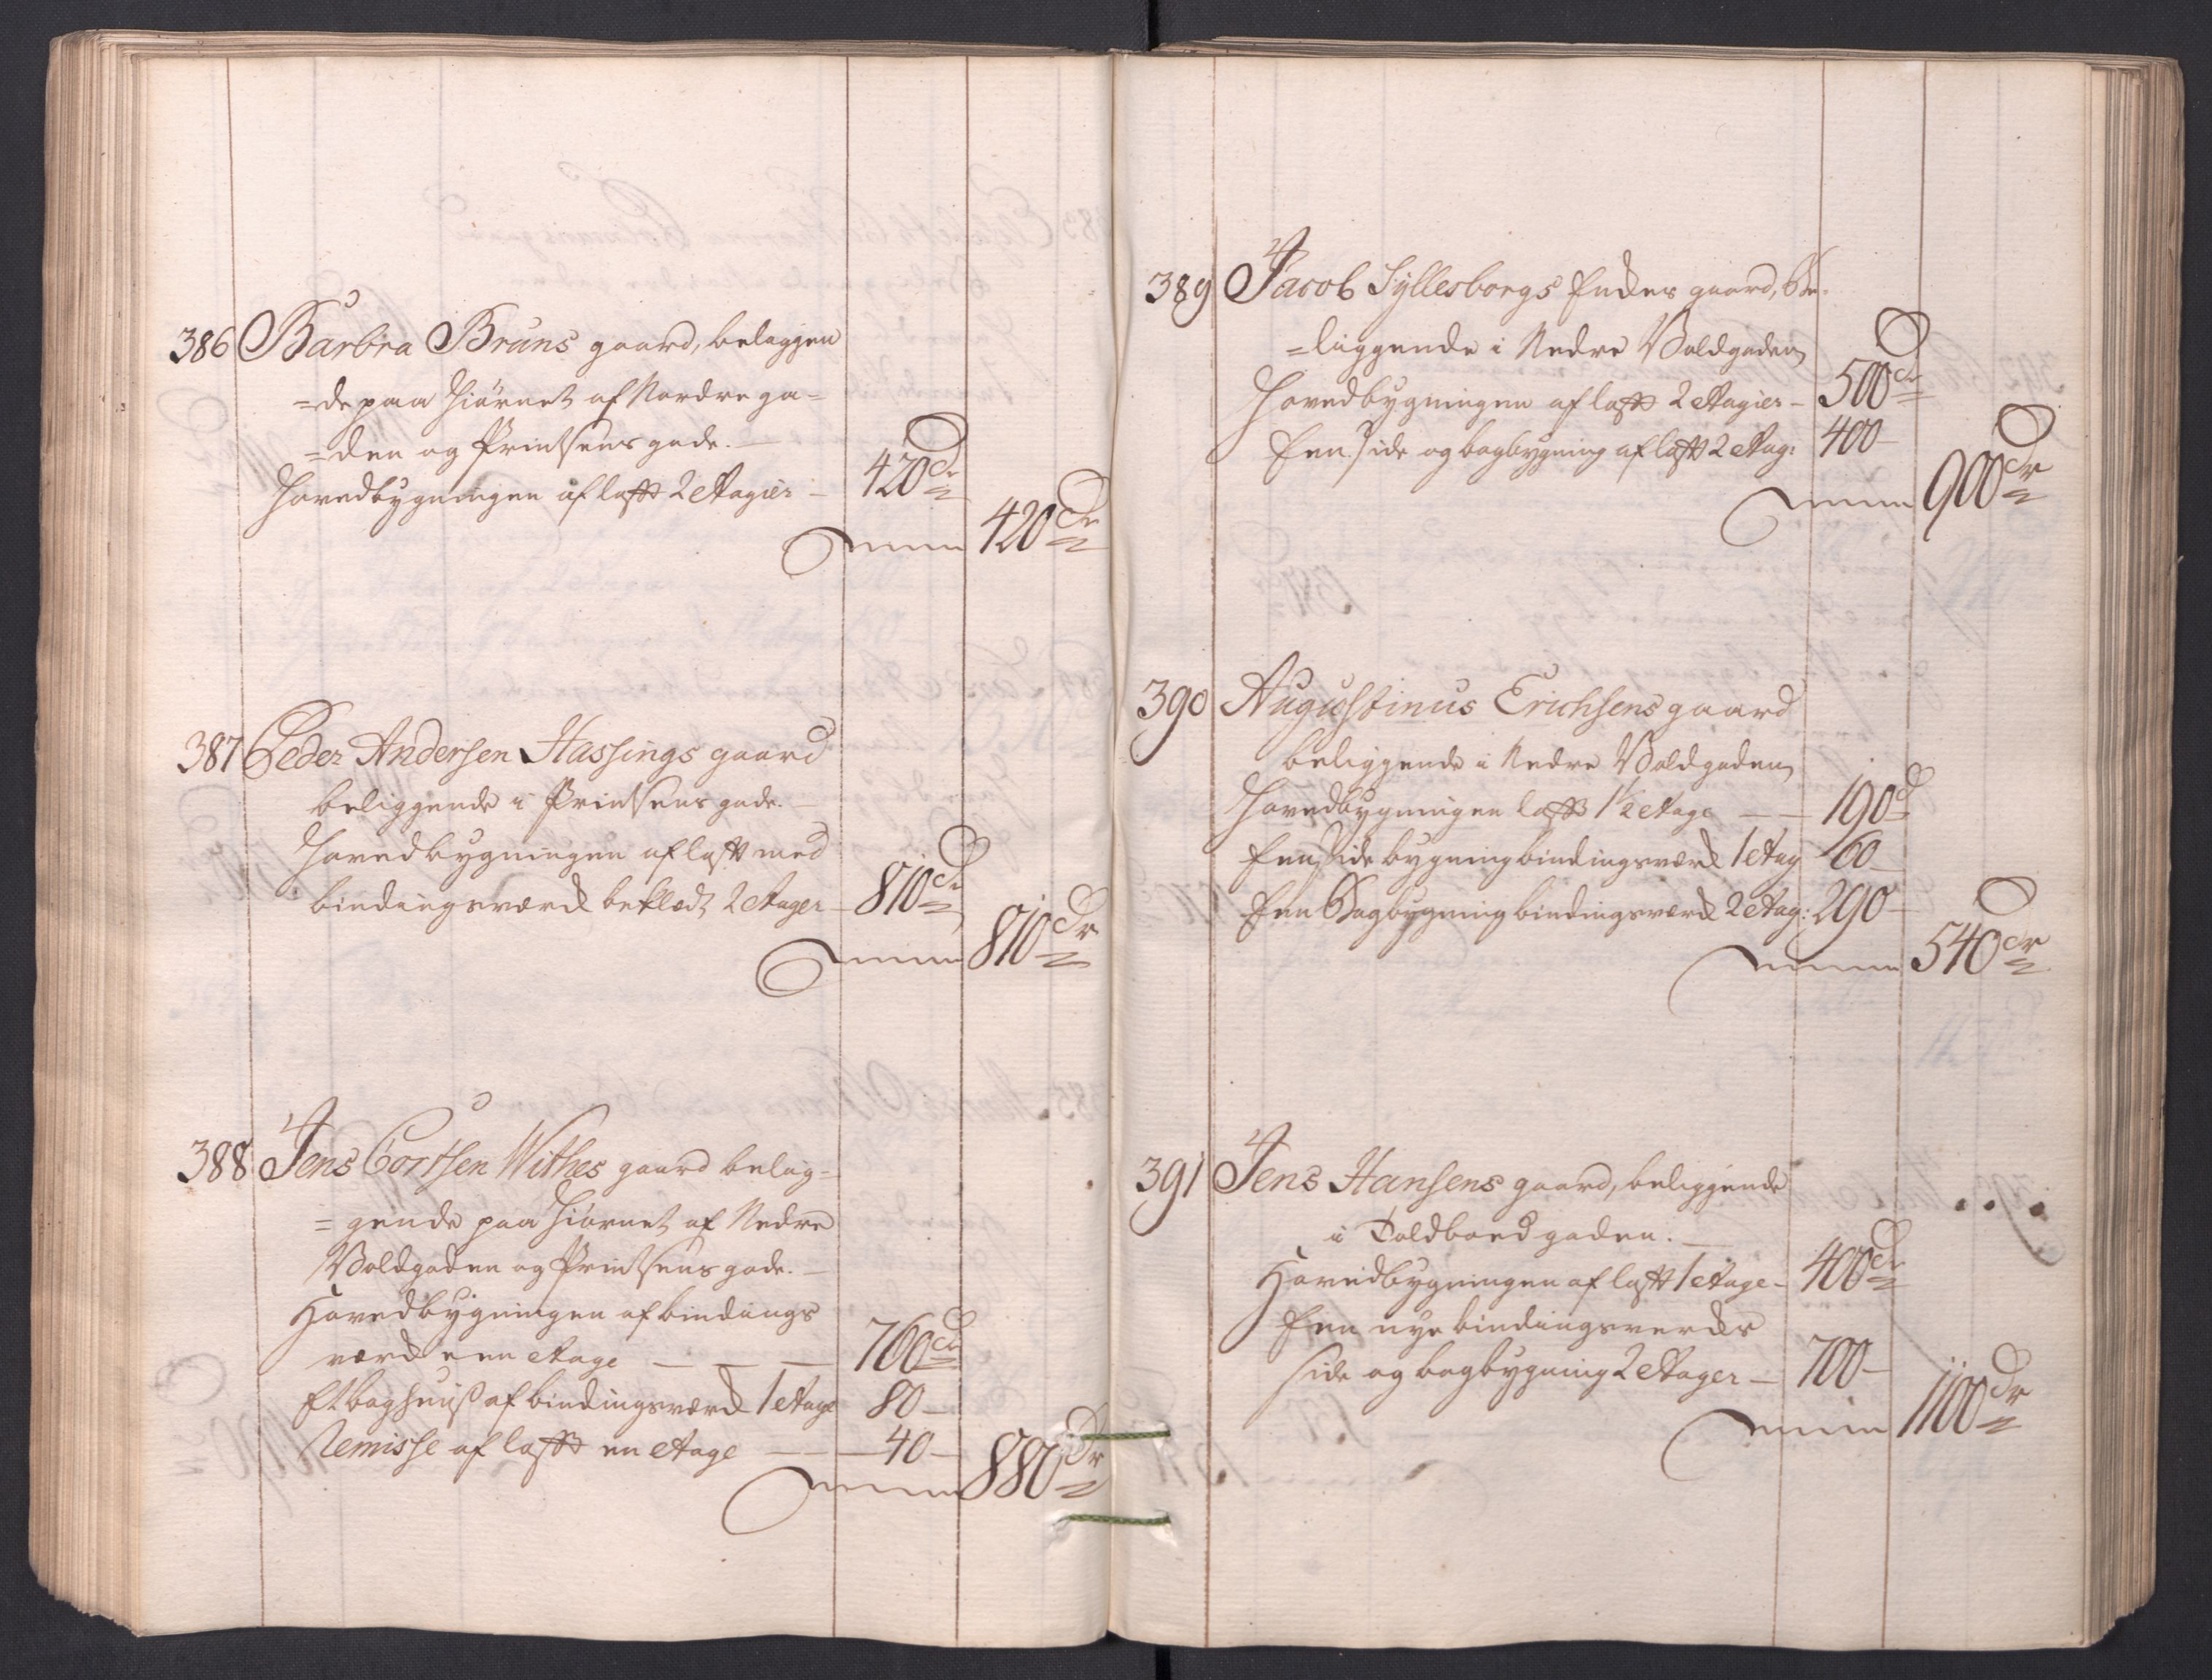 386 Barbra Bruns gaard, beliggen
=de paa Hiørnet af Nordre ga=
=den og Printsens gade.
Hovedbygningen af laft 2 Etagier – 420 dr
420 dr
387 Peder Andersen Hassings gaard
beliggende i Printsens gade.
Hovedbygningen af laft med
bindingsværck beklædt 2 Etager – 810 dr
Summa 810 dr
388 Jens Cortsen Withes gaard belig=
=gende paa Hiørnet af Nedre
Voldgaden og Printsens gade.
Hovedbygningen af bindings
værck een Etage – – – 760 dr
Et baghuuß af bindingsværck 1 Etage 80 –
Remisse af laft en Etage – – 40 –
880 dr
389 Jacob Syllesborgs Enckes gaard, be=
=liggende i Nedre Voldgaden
Hovedbygningen af laft 2 Etagier – 500 dr
Een side og bagbygning af laft 2 Etag: 400 –
900 dr
390 Augustinus Erichsens gaard
beliggende i Nedre Voldgaden
Hovedbygningen laft 1½ Etage – – 190 d
Een side bygning bindingsværck 1 Etag 60 –
Een Bagbygning bindingsværck 2 Etag: 290 –
540 dr
391 Jens Hansens gaard, beliggende
i Toldboed gaden. –
Hovedbygningen af laft 1 Etage – 400 dr
Een nye bindingsvercks
side og bagbygning 2 Etager – 700 –
1100 dr